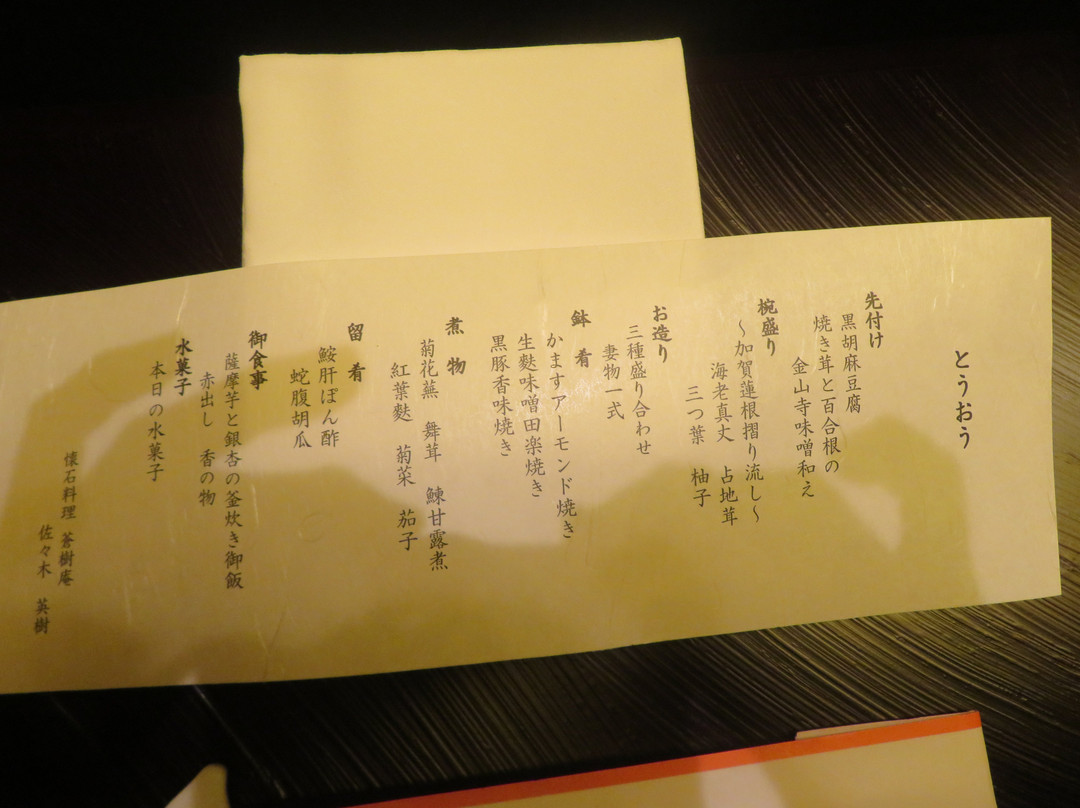 とうおう
先付け
黒胡麻豆腐
焼き茸と百合根の
金山寺味噌和え
椀盛り
～加賀蓮根摺り流し～
海老真丈　占地茸
三つ葉　柚子
お造り
三種盛り合わせ
妻物一式
鉢肴
かますアーモンド焼き
生麩味噌田楽焼き
黒豚香味焼き
煮物
菊花蕪　舞茸　鰊甘露煮
紅葉麩　菊菜　茄子
留肴
鮟肝ぽん酢
蛇腹胡瓜
御食事
薩摩芋と銀杏の釜炊き御飯
赤出し　香の物
水菓子
本日の水菓子
懐石料理　蒼樹庵
佐々木　英樹